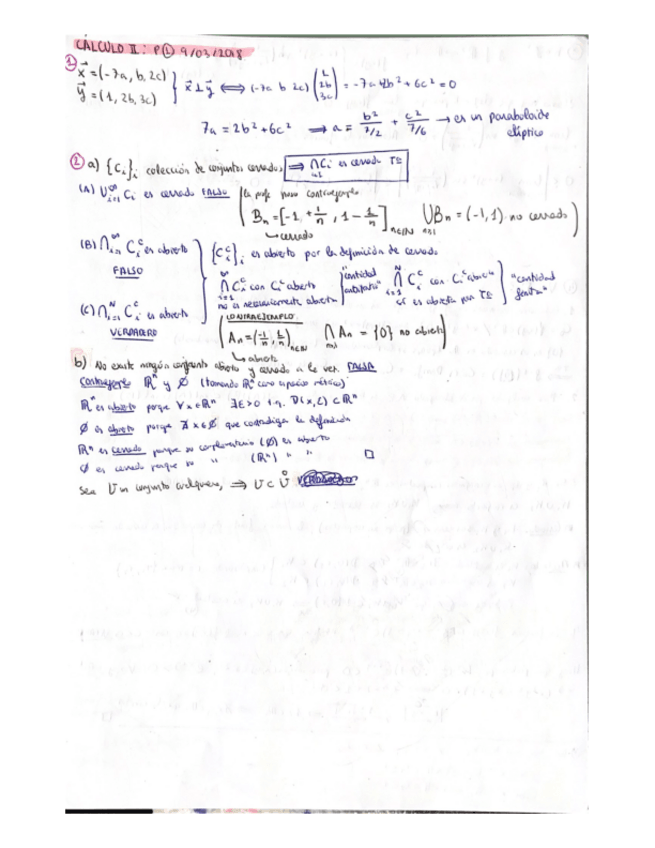 CÁLCULO II: P① 9/03/2018
① x⃗ = (-7a, b, 2c)
y⃗ = (1, 2b, 3c)
x⃗ ⊥ y⃗ ⟺ (-7a b 2c) (1 2b 3c) = -7a + 2b² + 6c² = 0
7a = 2b² + 6c² ⟹ a = b²/(7/2) + c²/(7/6) → es un paraboloide elíptico
② a) {Cᵢ}ᵢ colección de conjuntos cerrados ⟹ ∩Cᵢ es cerrado
(A) ∪ᵢ₌₁^∞ Cᵢ es cerrado FALSO
Bₙ = [-1 + 1/n, 1 - 1/n] n∈ℕ ∪Bₙ = (-1, 1) no cerrado
↳ cerrado
(B) ∩ᵢ₌₁^∞ Cᵢᶜ es abierto
FALSO
{Cᵢᶜ}ᵢ es abierto por la definición de cerrado
∩ᵢ₌₁^∞ Cᵢᶜ con Cᵢᶜ abierto
no es necesariamente abierto
"cantidad
∩ᵢ₌₁^N Cᵢᶜ con Cᵢᶜ abierto
sí es abierto por
"cantidad finita"
(C) ∩ᵢ₌₁^N Cᵢᶜ es abierto
VERDADERO
CONTRAEJEMPLO:
Aₙ = (-1/n, 1/n) n∈ℕ ∩ Aₙ = {0} no abierto
↳ abierto
b) No existe ningún conjunto abierto y cerrado a la vez FALSA
ℝⁿ y ∅ (tomando ℝⁿ como espacio métrico)
ℝⁿ es abierto porque ∀x∈ℝⁿ ∃ε>0 t.q. D(x,ε) ⊂ ℝⁿ
∅ es abierto porque ∄ x∈∅ que contradiga la definición
ℝⁿ es cerrado porque su complementario (∅) es abierto
∅ es cerrado porque su " (ℝⁿ) " □
Sea U un conjunto cualquiera, ⟹ U ⊂ Ů